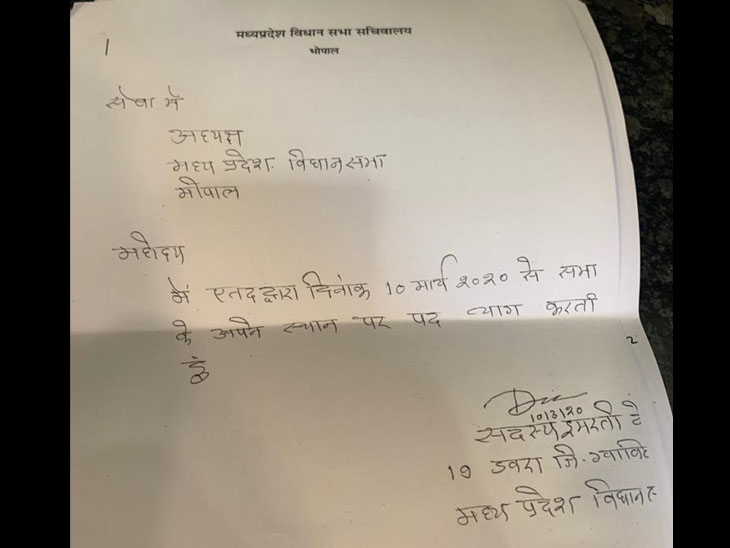 मध्यप्रदेश विधान सभा सचिवालय
भोपाल
1
सेवा में
अध्यक्ष
मध्य प्रदेश विधानसभा
भोपाल
महोदय
मैं एतदद्वारा दिनांक 10 मार्च २०२० से सभा
के अपने स्थान पर पद त्याग करती
हूं
2
10/3/20
सदस्य इमरती दे
19 डबरा जि. ग्वालि
मध्य प्रदेश विधानस